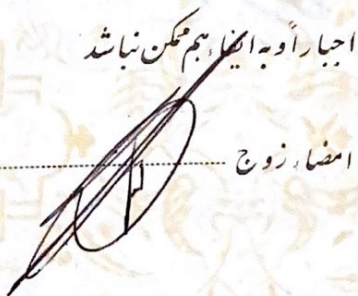 اجبار او به ایفاء هم ممکن نباشد
امضاء زوج